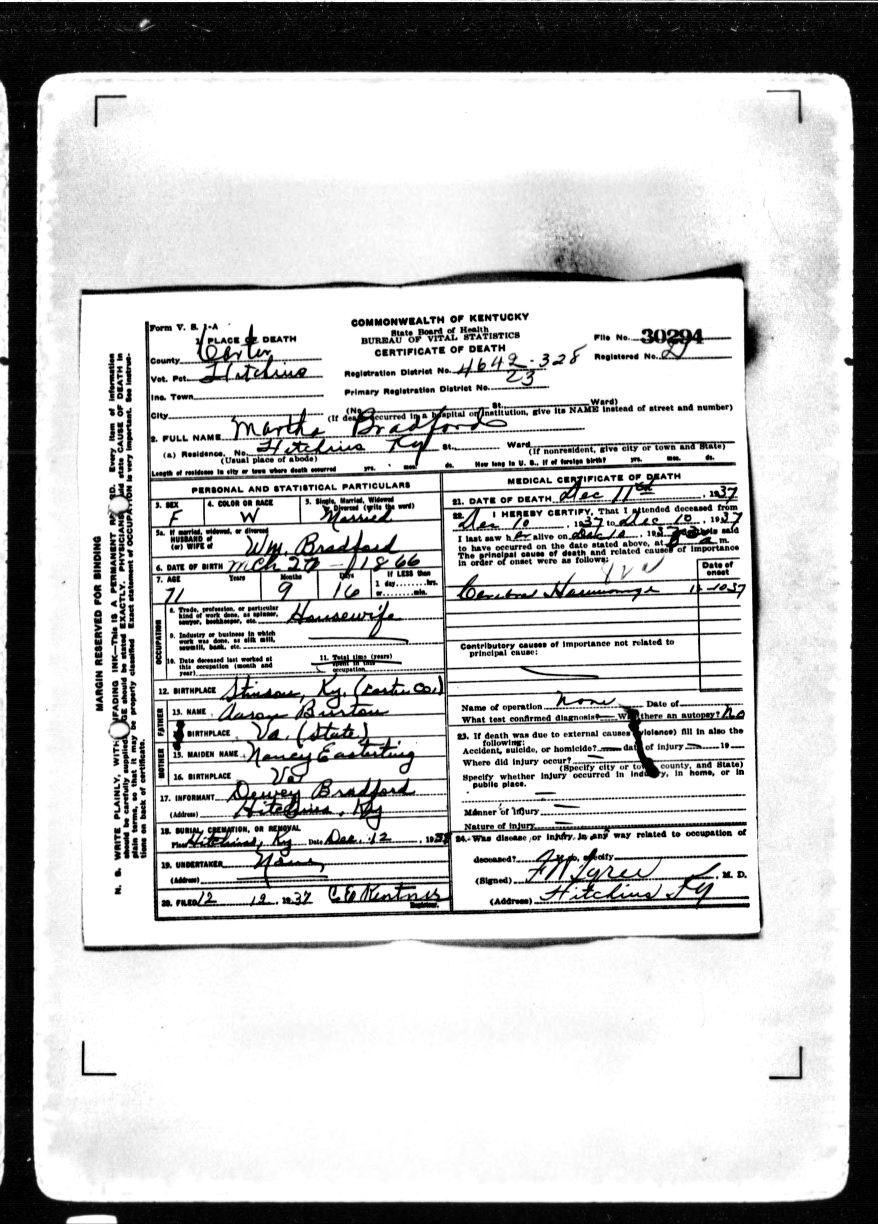 Form V. S. 1-A
COMMONWEALTH OF KENTUCKY
State Board of Health
BUREAU OF VITAL STATISTICS
CERTIFICATE OF DEATH
File No. 30294
Registered No.
1. PLACE OF DEATH
County Carter
Vot. Pct. Hitchins
Inc. Town
City
Registration District No. 4642-328
Primary Registration District No. 23
(No. St. Ward)
(If death occurred in a hospital or institution, give its NAME instead of street and number)
2. FULL NAME Martha Bradford
(a) Residence. No. Hitchins Ky St., Ward
(Usual place of abode) (If nonresident, give city or town and State)
Length of residence in city or town where death occurred yrs. mos. ds. How long in U. S., if of foreign birth? yrs. mos. ds.
PERSONAL AND STATISTICAL PARTICULARS
3. SEX F
4. COLOR OR RACE W
5. Single, Married, Widowed or Divorced (write the word) Married
5a. If married, widowed, or divorced
HUSBAND of
(or) WIFE of Wm. Bradford
6. DATE OF BIRTH Mch 1866
7. AGE 71 Years 9 Months 16 Days If LESS than 1 day, hrs. or min.
OCCUPATION
8. Trade, profession, or particular kind of work done, as spinner, sawyer, bookkeeper, etc. Housewife
9. Industry or business in which work was done, as silk mill, sawmill, bank, etc.
10. Date deceased last worked at this occupation (month and year)
11. Total time (years) spent in this occupation
12. BIRTHPLACE Stinson, Ky. (Carter Co.)
FATHER
13. NAME Aaron Burton
BIRTHPLACE Va. (State)
MOTHER
15. MAIDEN NAME Nancy Easterling
16. BIRTHPLACE Va
17. INFORMANT Dewey Bradford
(Address) Hitchins, Ky
18. BURIAL, CREMATION, OR REMOVAL
Place Hitchins, Ky Date Dec. 12, 193
19. UNDERTAKER None
(Address)
20. FILED 12 12, 1937 Registrar.
MEDICAL CERTIFICATE OF DEATH
21. DATE OF DEATH Dec 11, 1937
22. I HEREBY CERTIFY, That I attended deceased from
Dec 10, 1937 to Dec 10, 1937
I last saw her alive on Dec 10, 1937 death is said
to have occurred on the date stated above, at a m.
The principal cause of death and related causes of importance
in order of onset were as follows:
Date of onset
Cerebral 12-10-37
Contributory causes of importance not related to
principal cause:
Name of operation none Date of
What test confirmed diagnosis? Was there an autopsy? No
23. If death was due to external causes (violence) fill in also the
following:
Accident, suicide, or homicide? date of injury 19
Where did injury occur?
(Specify city or town, county, and State)
Specify whether injury occurred in industry, in home, or in
public place.
Manner of injury
Nature of injury
24. Was disease or injury in any way related to occupation of
deceased? If so, specify
(Signed) M. D.
(Address) Hitchins Ky
MARGIN RESERVED FOR BINDING
N. B. WRITE PLAINLY, WITH UNFADING INK—THIS IS A PERMANENT RECORD. Every item of information
should be carefully supplied. AGE should be stated EXACTLY. PHYSICIANS should state CAUSE OF DEATH in
plain terms, so that it may be properly classified. Exact statement of OCCUPATION is very important. See instruc-
tions on back of certificate.